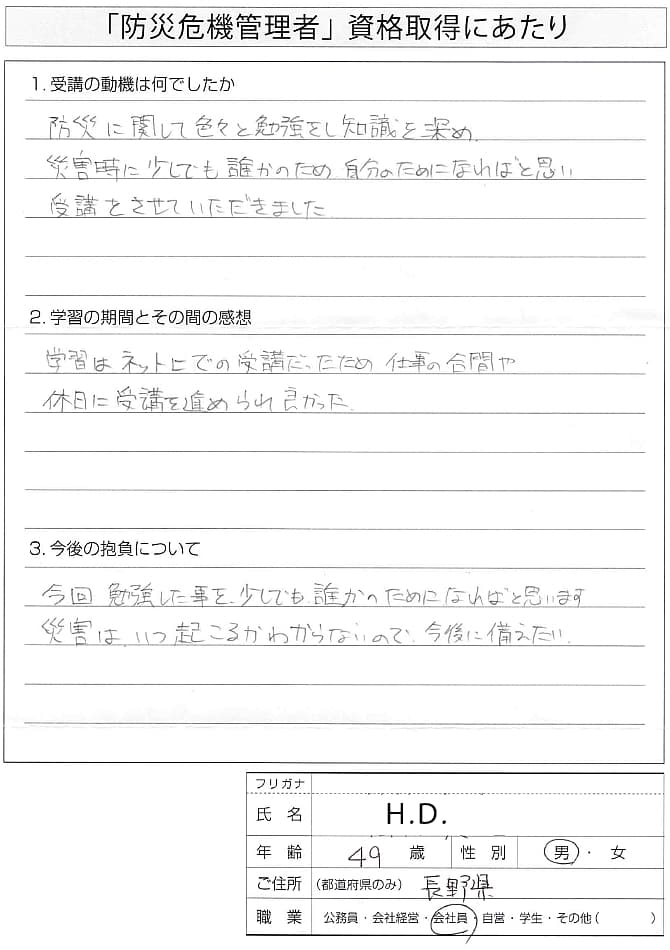 「防災危機管理者」資格取得にあたり
1.受講の動機は何でしたか
防災に関して色々と勉強をし知識を深め、
災害時に少しでも誰かのため、自分のためになればと思い
受講をさせていただきました
2.学習の期間とその間の感想
学習はネット上での受講だったため仕事の合間や
休日に受講を進められ良かった。
3.今後の抱負について
今回勉強した事を、少しでも誰かのためになればと思います
災害は、いつ起こるかわからないので、今後に備えたい。
フリガナ
氏名 H.D.
年齢 49 歳 性別 男・女
ご住所 (都道府県のみ) 長野県
職業 公務員・会社経営・会社員・自営・学生・その他( )